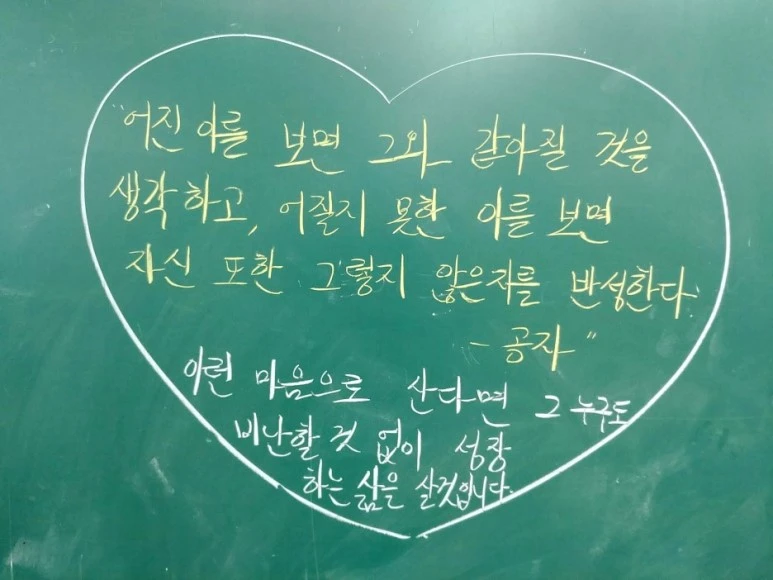 "어진 이를 보면 그와 같아질 것을
생각하고, 어질지 못한 이를 보면
자신 또한 그렇지 않은지를 반성한다
- 공자"
이런 마음으로 산다면 그 누구도
비난할 것 없이 성장
하는 삶을 살것입니다.